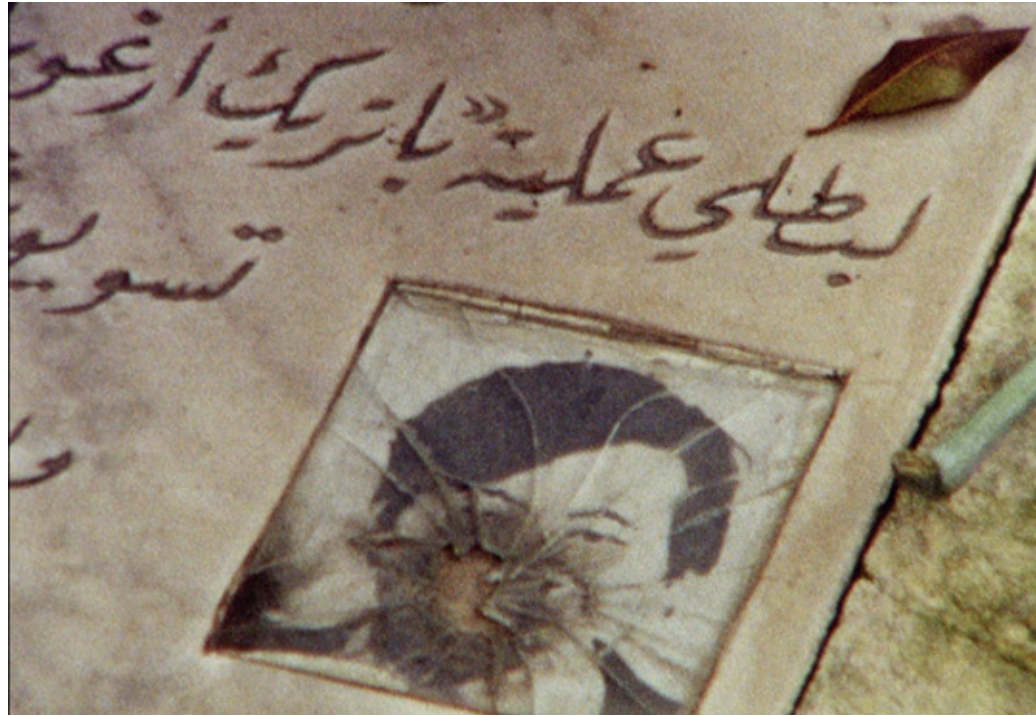 لبطلي عملية «باتريك أرغو
تسويـ